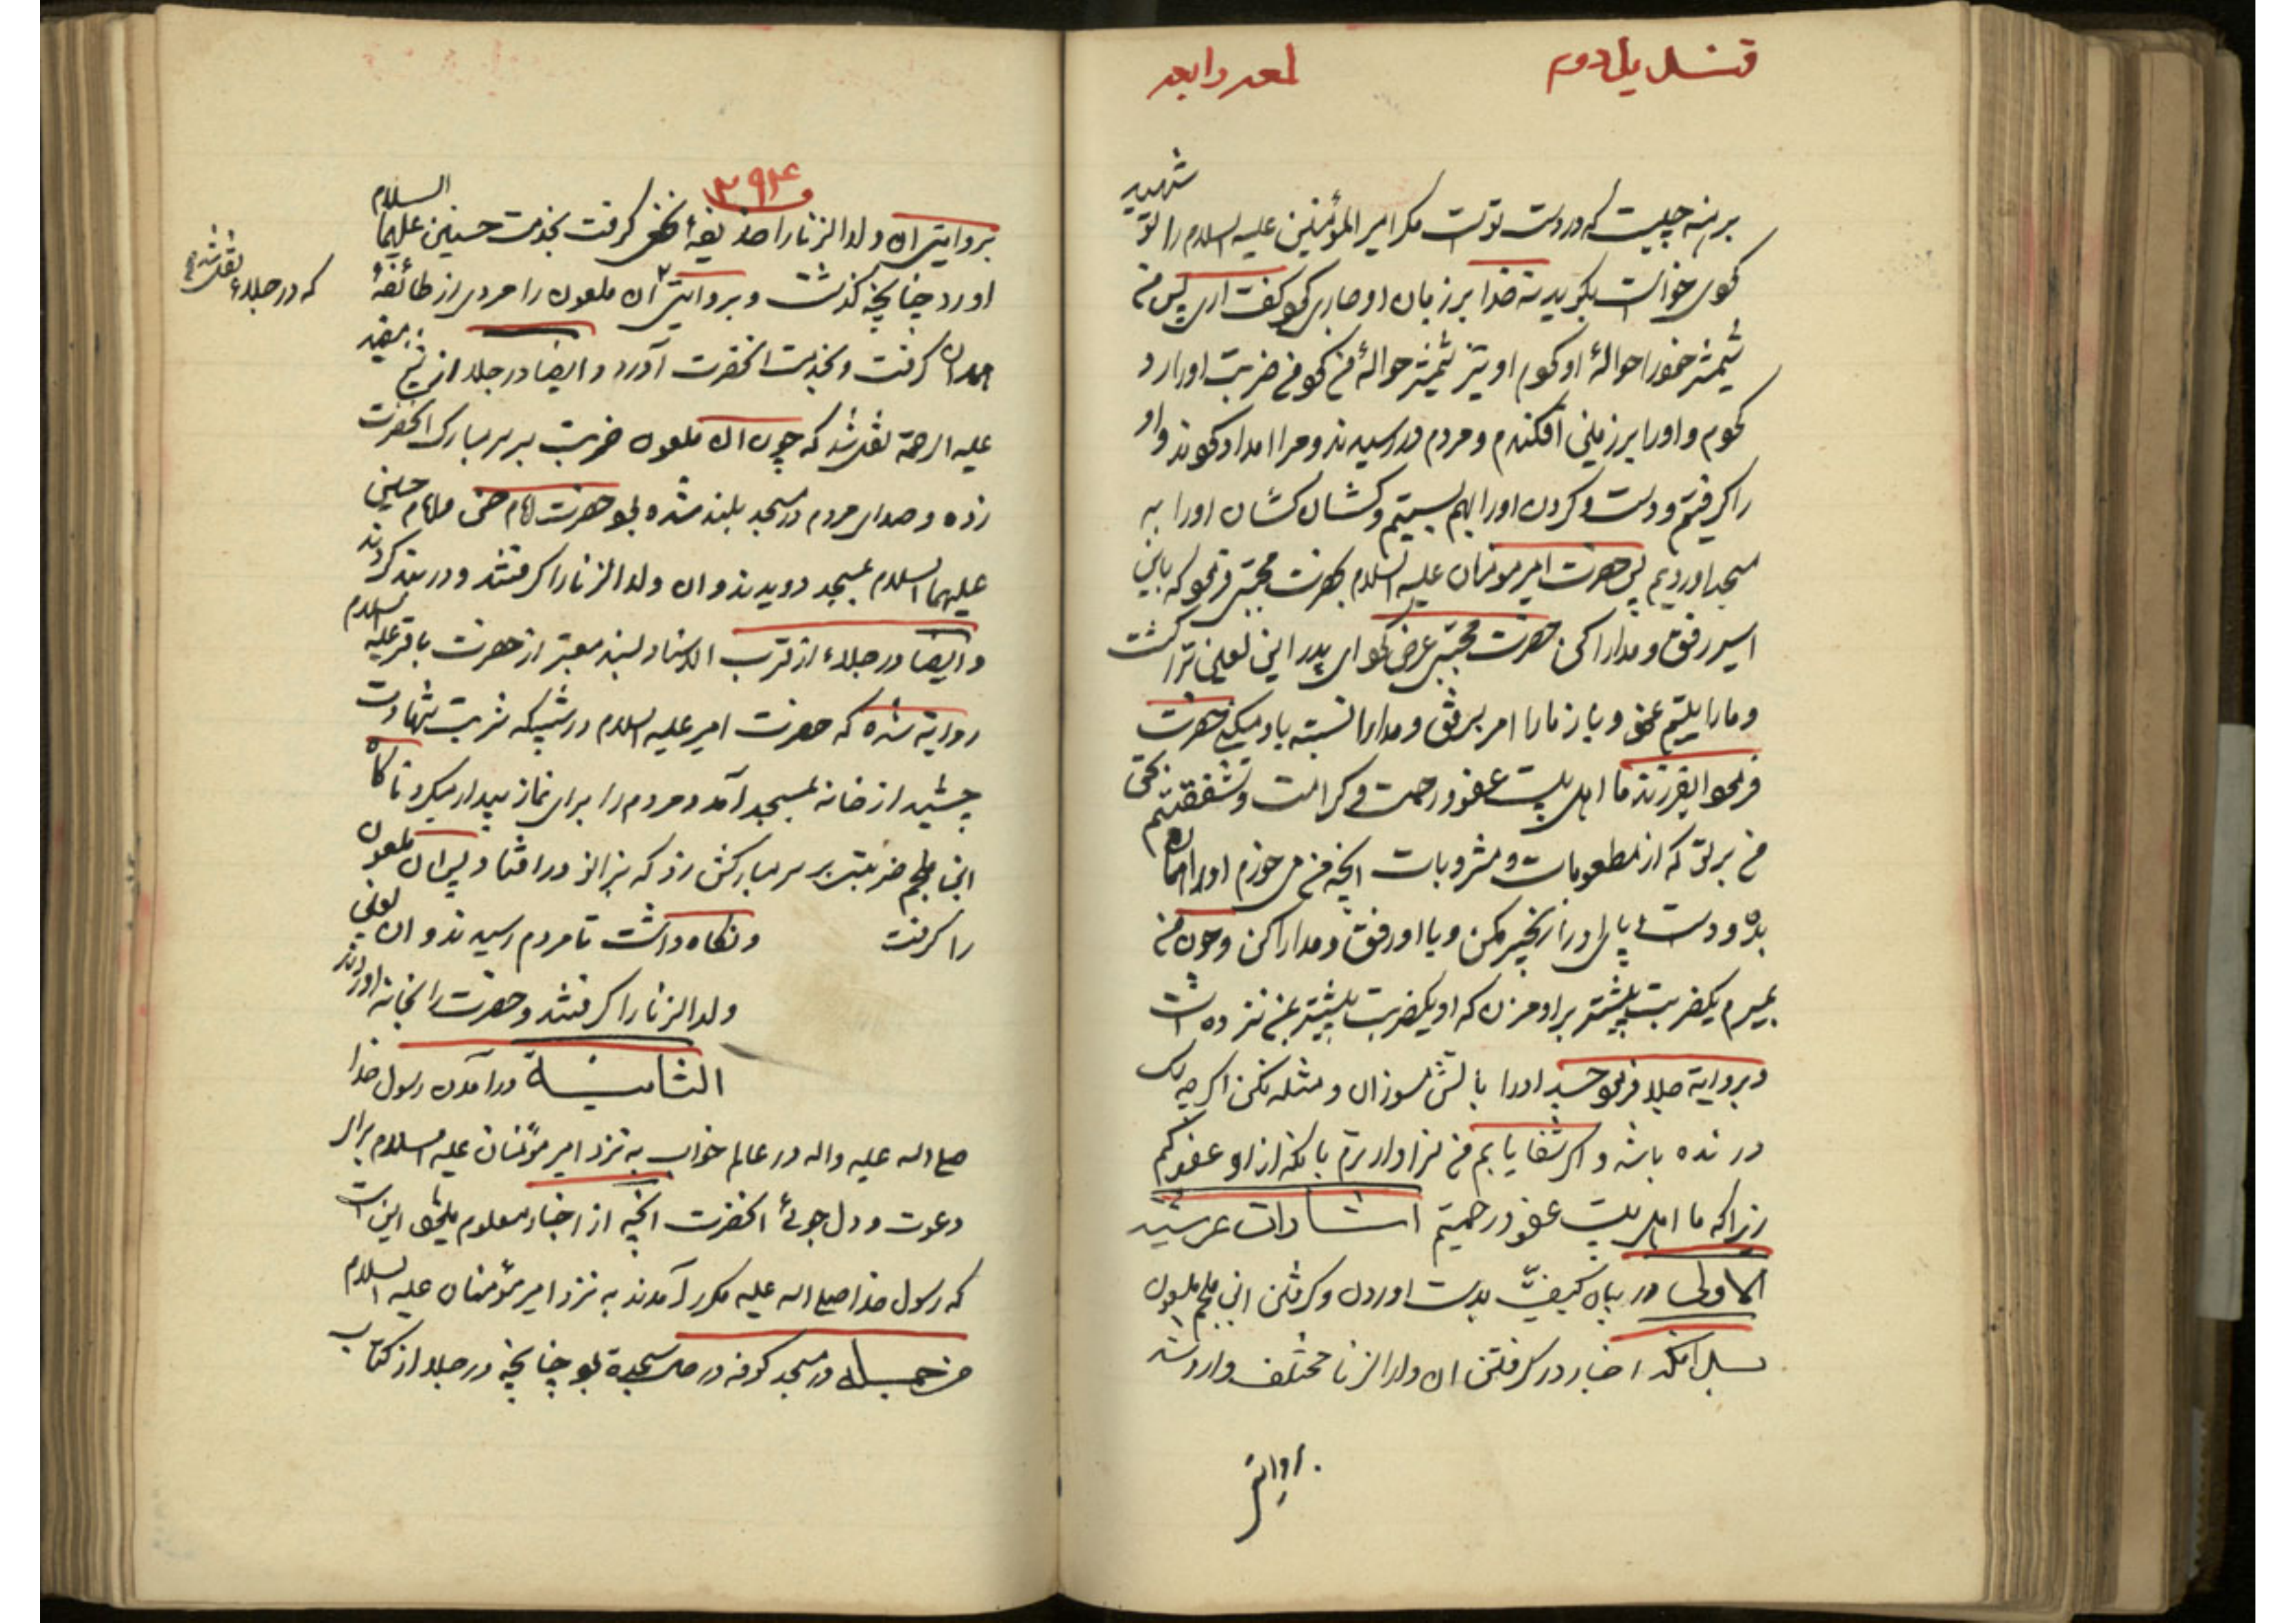 قندیل دوم
لمعه رابعه
برهنه چیست که در دست توست مکر امیر المؤمنین علیه السلام را تو شهید
کردی خواست بکوید نه خدا بر زبان او جاری کرد کفت اری پس من
شمشیر خود را حوالهٔ او کردم او نیز شمشیر حوالهٔ من کرد من ضربت او را رد
کردم و او را بر زمین افکندم و مردم در رسیدند و مرا امداد کردند و او
را کرفتم و دست و کردن او را بهم بستیم و کشان کشان او را به
مسجد اوردیم پس حضرت امیر مؤمنان علیه السلام بحضرت مجتبی فرمود که باین
اسیر رفق و مدارا کن حضرت مجتبی عرض کرد ای پدر این لعین ترا کشت
و ما را یتیم نمود و باز ما را امر برفق و مدارا نسبت باو میکنی حضرت
فرمود ایفرزند ما اهل بیت عفو و رحمت و کرامت و شفقتیم بحق
من بر تو که از مطعومات و مشروبات انچه من می خورم او را همان
بده و دست و پای او را زنجیر مکن و با او رفق و مدارا کن و چون من
بمیرم یکضربت بیشتر بر او مزن که او یکضربت بیشتر بمن نزده است
و بروایة جلاء فرمود جسد او را باتش مسوزان و مثله نکن اکر چه سک
درنده باشد و اکر شفا یابم من سزاوارترم بانکه از او عفو کنم
زیرا که ما اهل بیت عفو و رحمتیم اشارات عرشیه
الاولی در بیان کیفیّت بدست اوردن و کرفتن ابن ملجم ملعون
بدانکه اخبار در کرفتن ان ولد الزنا مختلف وارد شده
بروایتی
۳۹۴
بروایتی ان ولد الزنا را حذیفهٔ نخعی کرفت بخدمت حسنین علیهما السلام
اورد چنانچه کذشت و بروایتی ان ملعون را مردی از طائفهٔ
همدان کرفت و بخدمت انحضرت آورد و ایضا در جلاء از شیخ مفید
علیه الرحمة نقل شد که چون ان ملعون ضربت بر سر مبارک انحضرت
زده و صدای مردم در مسجد بلند شده بود حضرت امام حسن و امام حسین
علیهما السلام بمسجد دویدند و ان ولد الزنا را کرفتند و در بند کردند
و ایضا در جلاء از قرب الاسناد بسند معتبر از حضرت باقر علیه السلام
روایة شده که حضرت امیر علیه السلام در شبیکه شربت شهادت
چشید از خانه بمسجد آمد و مردم را برای نماز بیدار میکرد ناکاه
ابن ملجم ضربتی بر سر مبارکش زد که بزانو در افتاد و پس ان ملعون
را کرفت و نکاه داشت تا مردم رسیدند و ان لعین
ولد الزنا را کرفتند و حضرت را بخانه اوردند
الثانیة در آمدن رسول خدا
صلی الله علیه واله در عالم خواب به نزد امیر مؤمنان علیه السلام برای
دعوت و دل جوئی انحضرت انچه از اخبار معلوم میشود این است
که رسول خدا صلی الله علیه مکرر آمدند به نزد امیر مؤمنان علیه السلام
من جمله در مسجد کوفه در حال سجده بود چنانچه در جلاء از کتاب
که در جلاء نقل شده